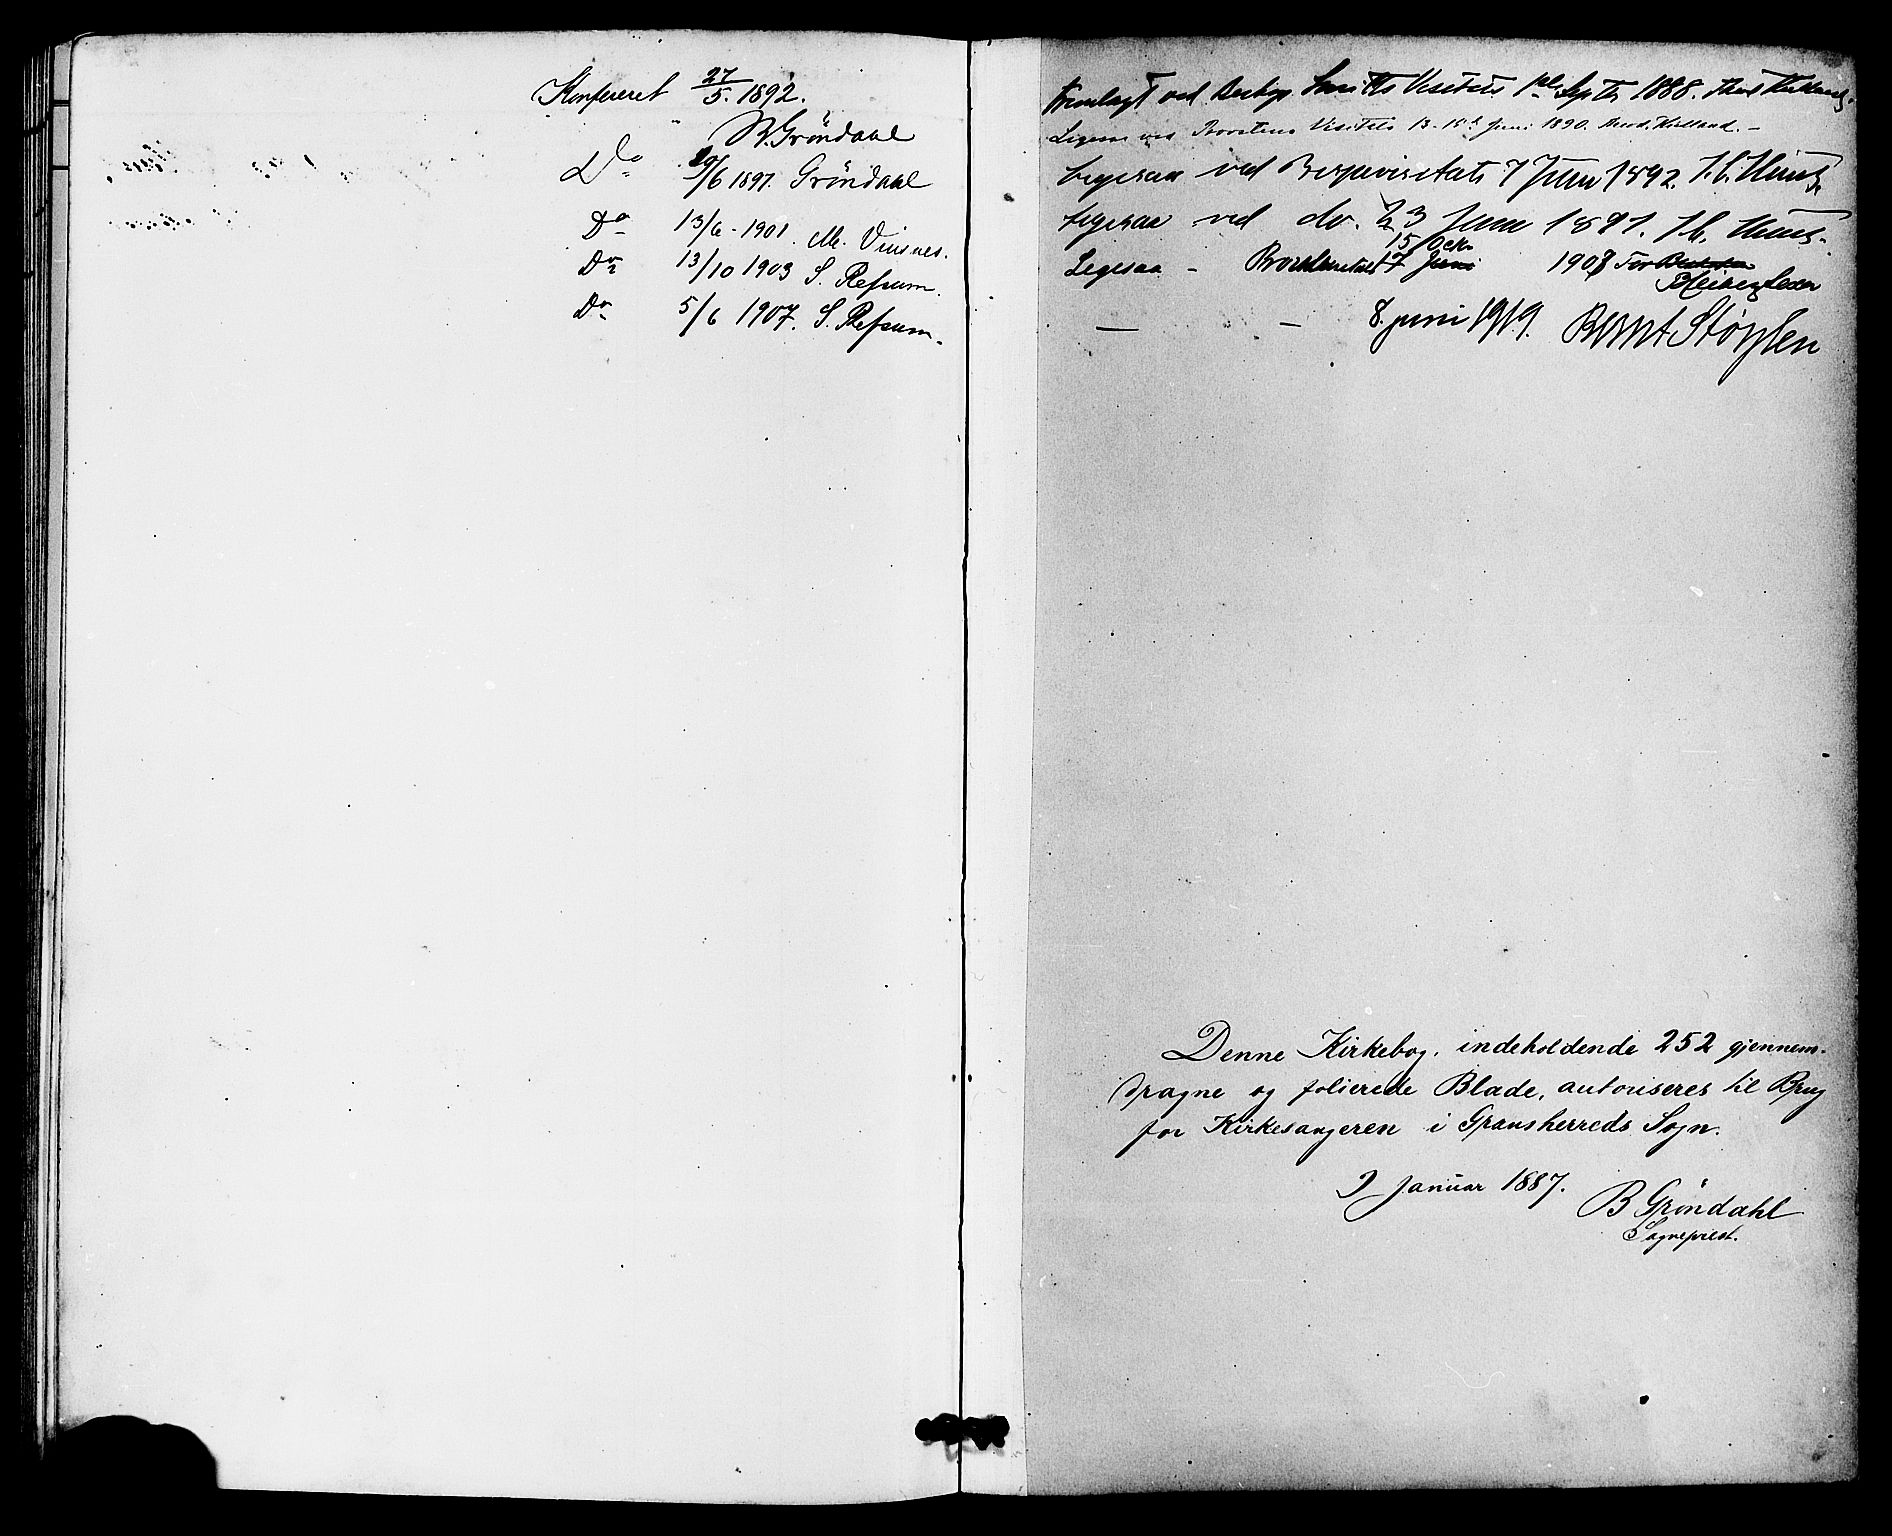 Konfereret 27/5. 1892.
B. Grøndahl
Do 29/6 1897. Grøndahl
Do 13/6 - 1901. M. Vinsnes.
Do 13/10 1903 S. Refsum.
Do 5/6 1907. S. Refsum.
Fremlagt ved Biskop Smitts Visitats 1ste Septr 1888.
Ligesaa ved Provstens Visitats 13-15de Juni 1890.
Ligesaa ved Bispevisitats 7 Juni 1892.
Ligesaa ved do. 23 Juni 1897.
Ligesaa - 15 Juni 1908
— — 8. juni 1919. Bernt Støylen
Denne Kirkebog, indeholdende 252 gjennem-
dragne og folierede Blade, autoriseres til Brug
for Kirkesangeren i Gransherreds Sogn.
2 Januar 1887.
B Grøndahl
Sogneprest.